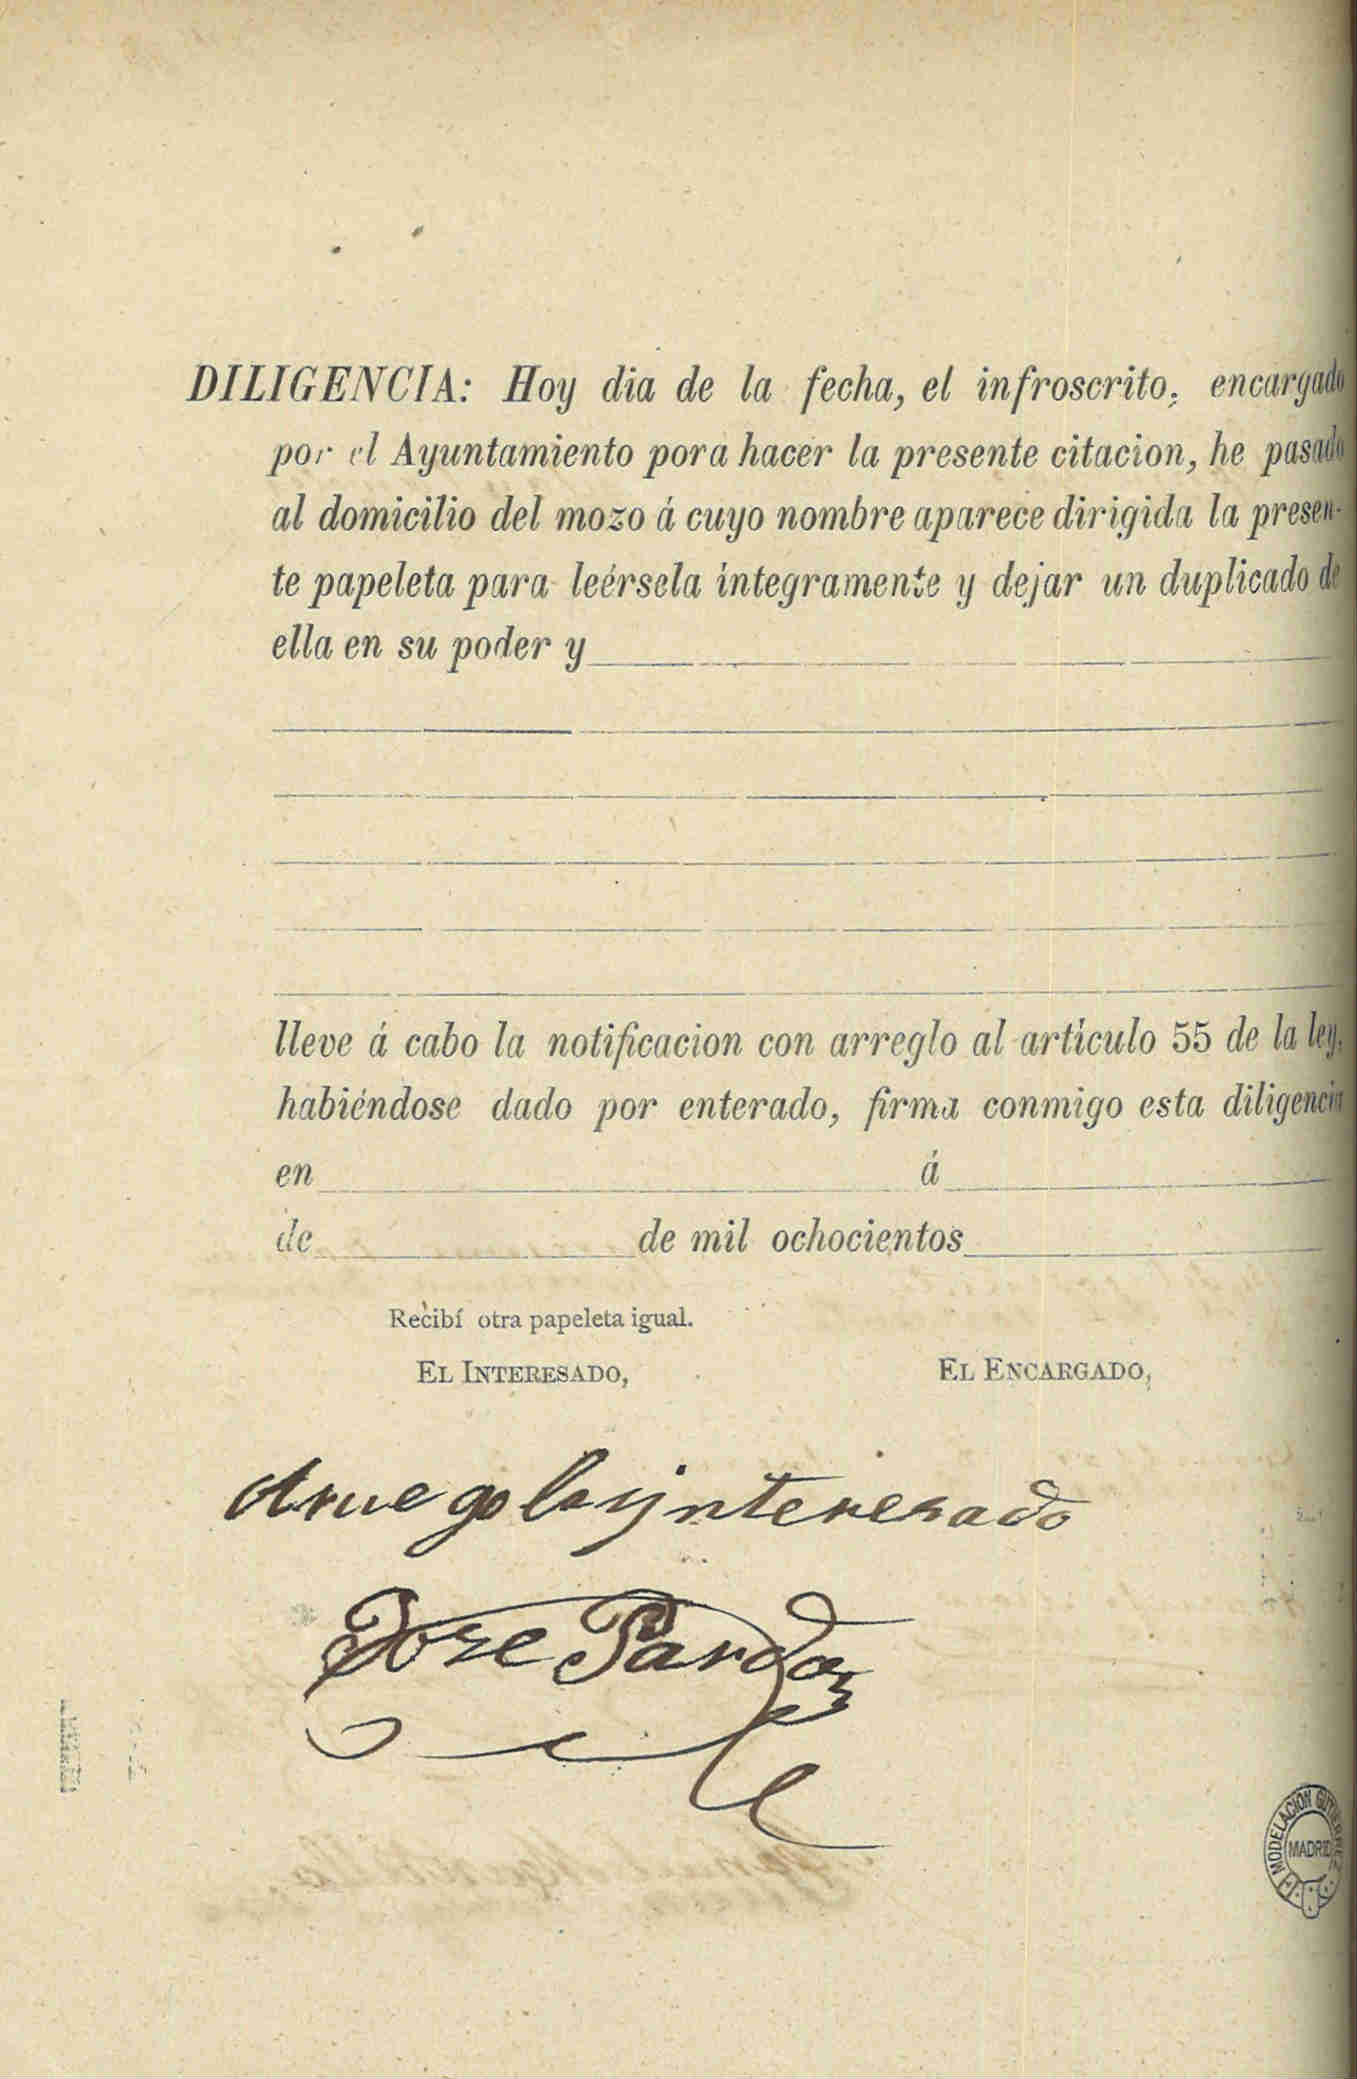 DILIGENCIA: Hoy dia de la fecha, el infroscrito, encargado
por el Ayuntamiento pora hacer la presente citacion, he pasado
al domicilio del mozo á cuyo nombre aparece dirigida la presen-
te papeleta para leérsela íntegramente y dejar un duplicado de
ella en su poder y
lleve á cabo la notificacion con arreglo al artículo 55 de la ley,
habiéndose dado por enterado, firma conmigo esta diligencia
en á
de de mil ochocientos
Recibí otra papeleta igual.
EL INTERESADO, EL ENCARGADO,
Arruego interesado
Jose Pardo
MODELACION GUTIERREZ
MADRID